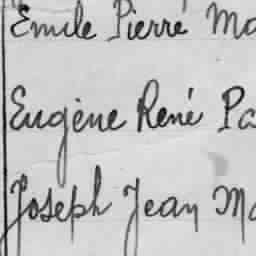 Emile Pierre Ma
Eugène René Pa
Joseph Jean Ma